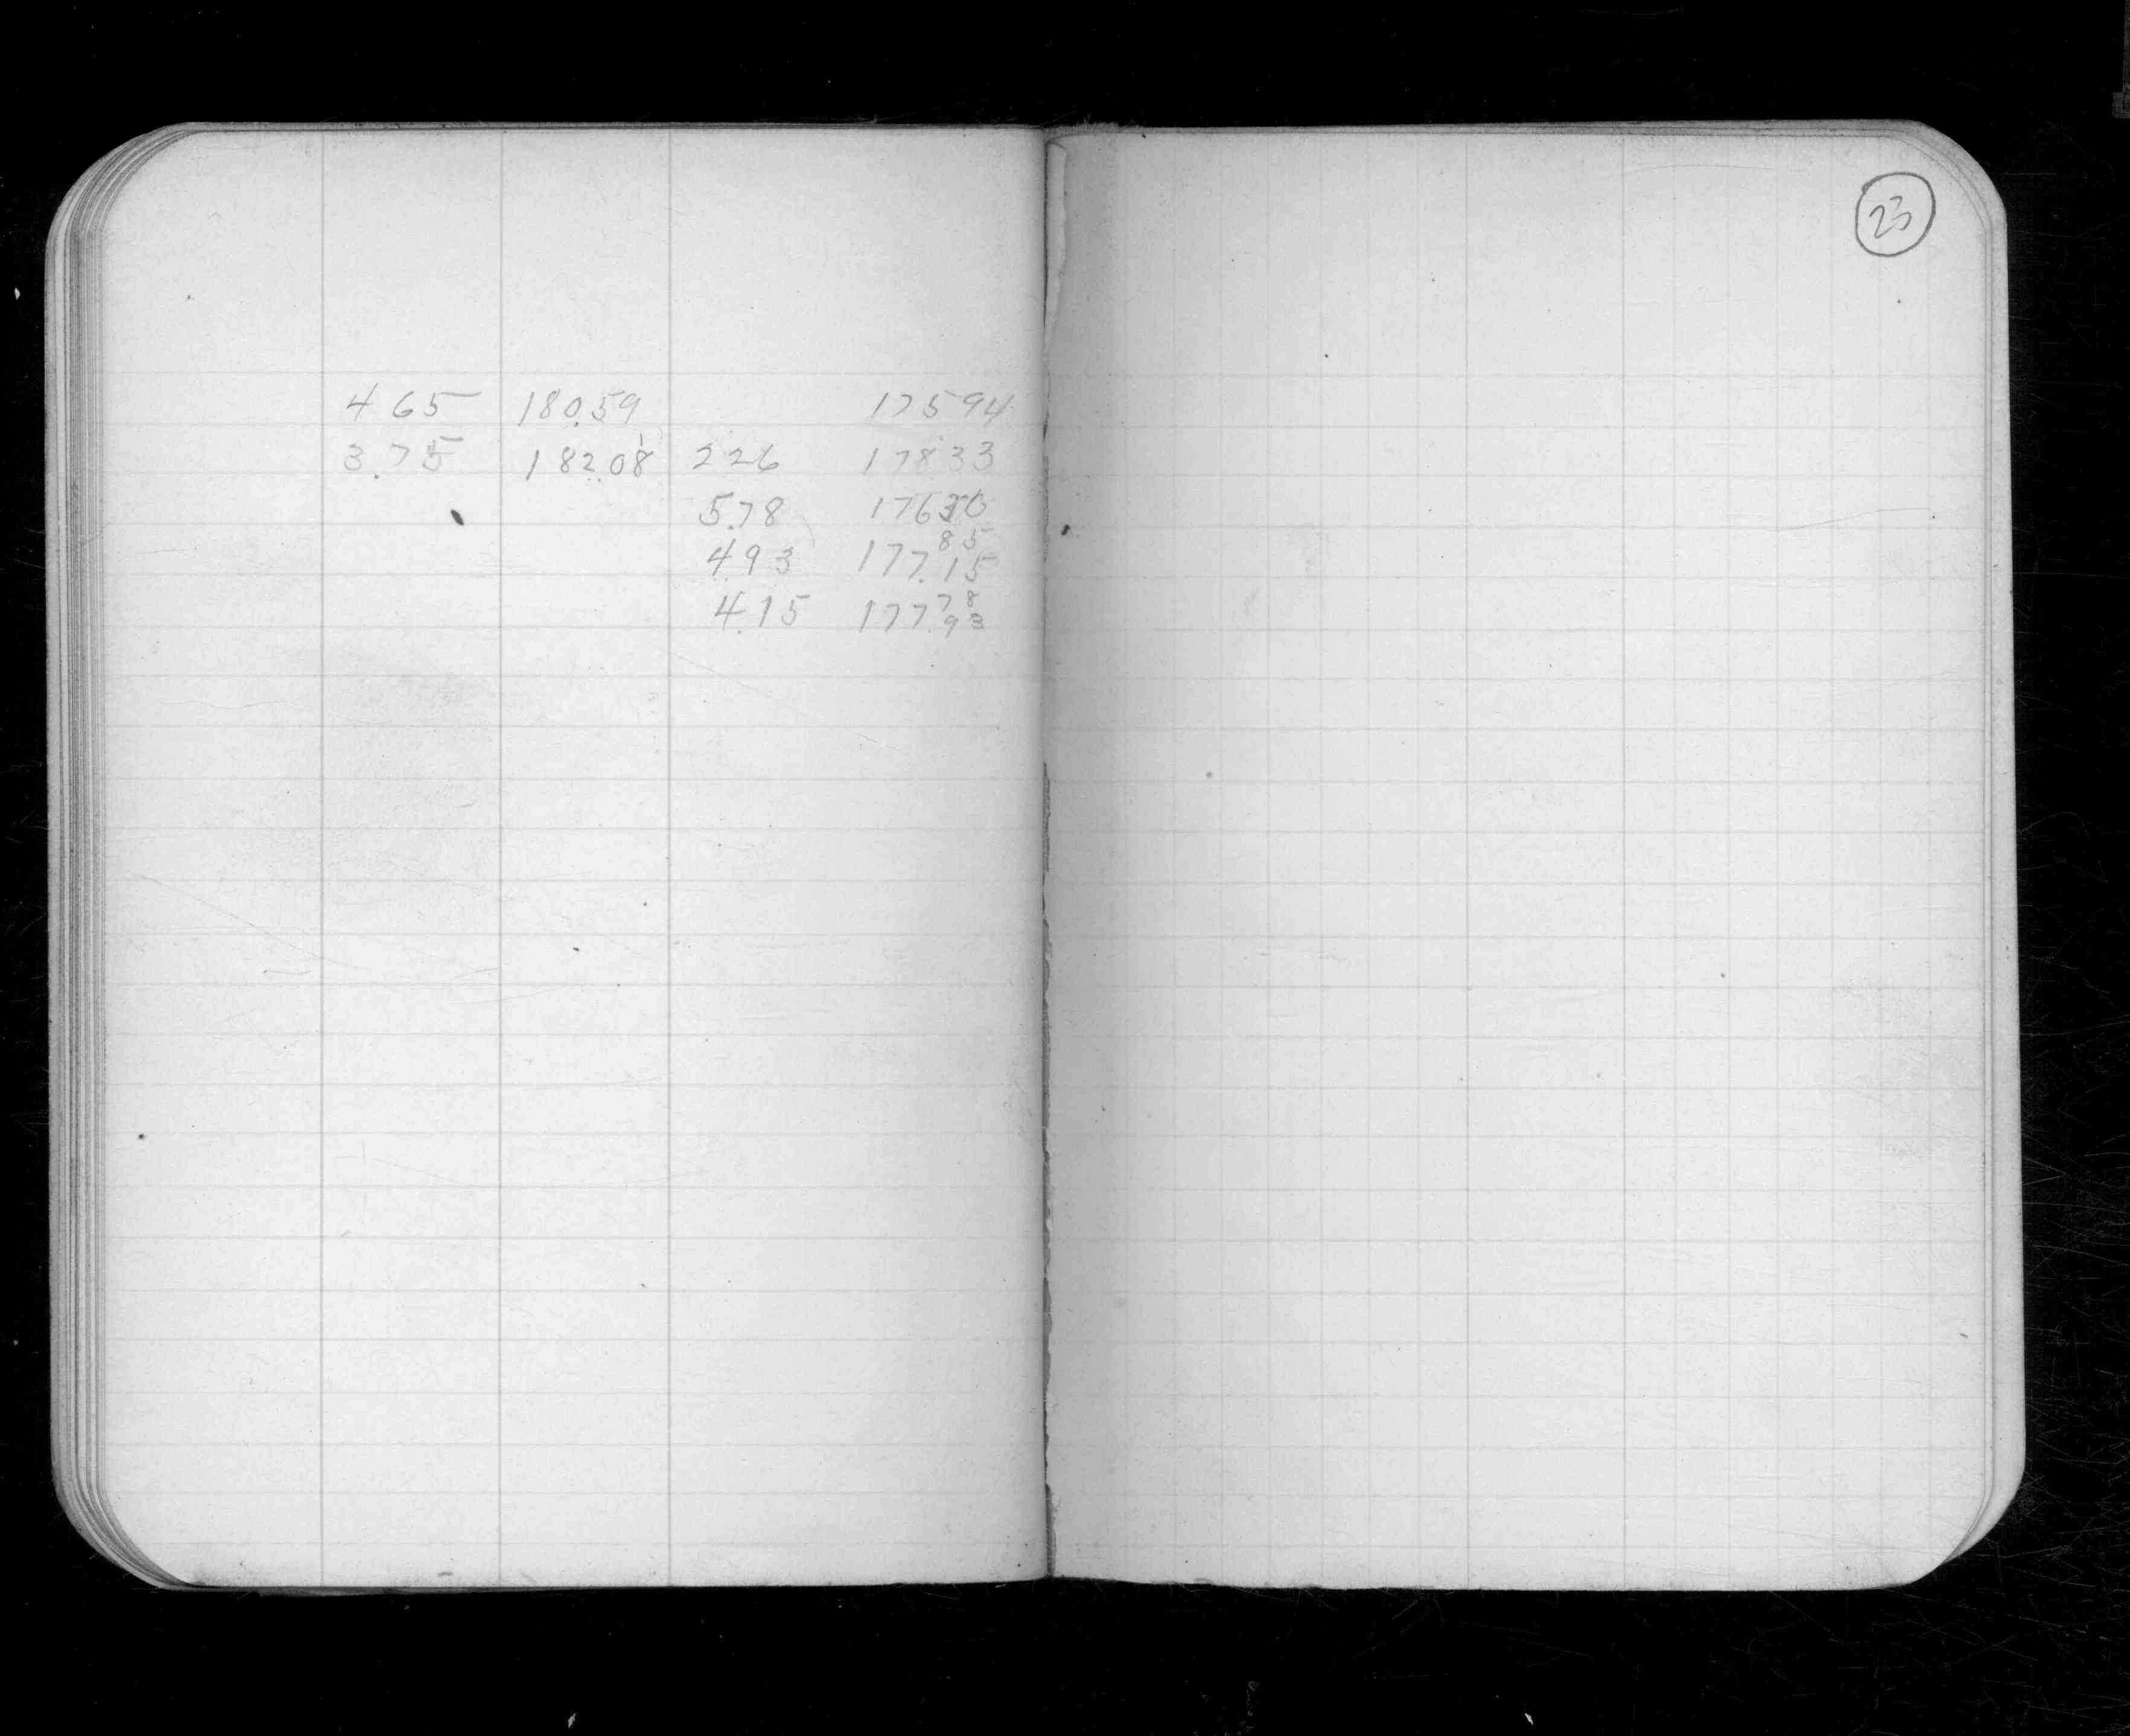 23
465 180.59 17594
3.75 182.08 226 17833
5.78 17630
85
4.93 177.15
78
4.15 177.93